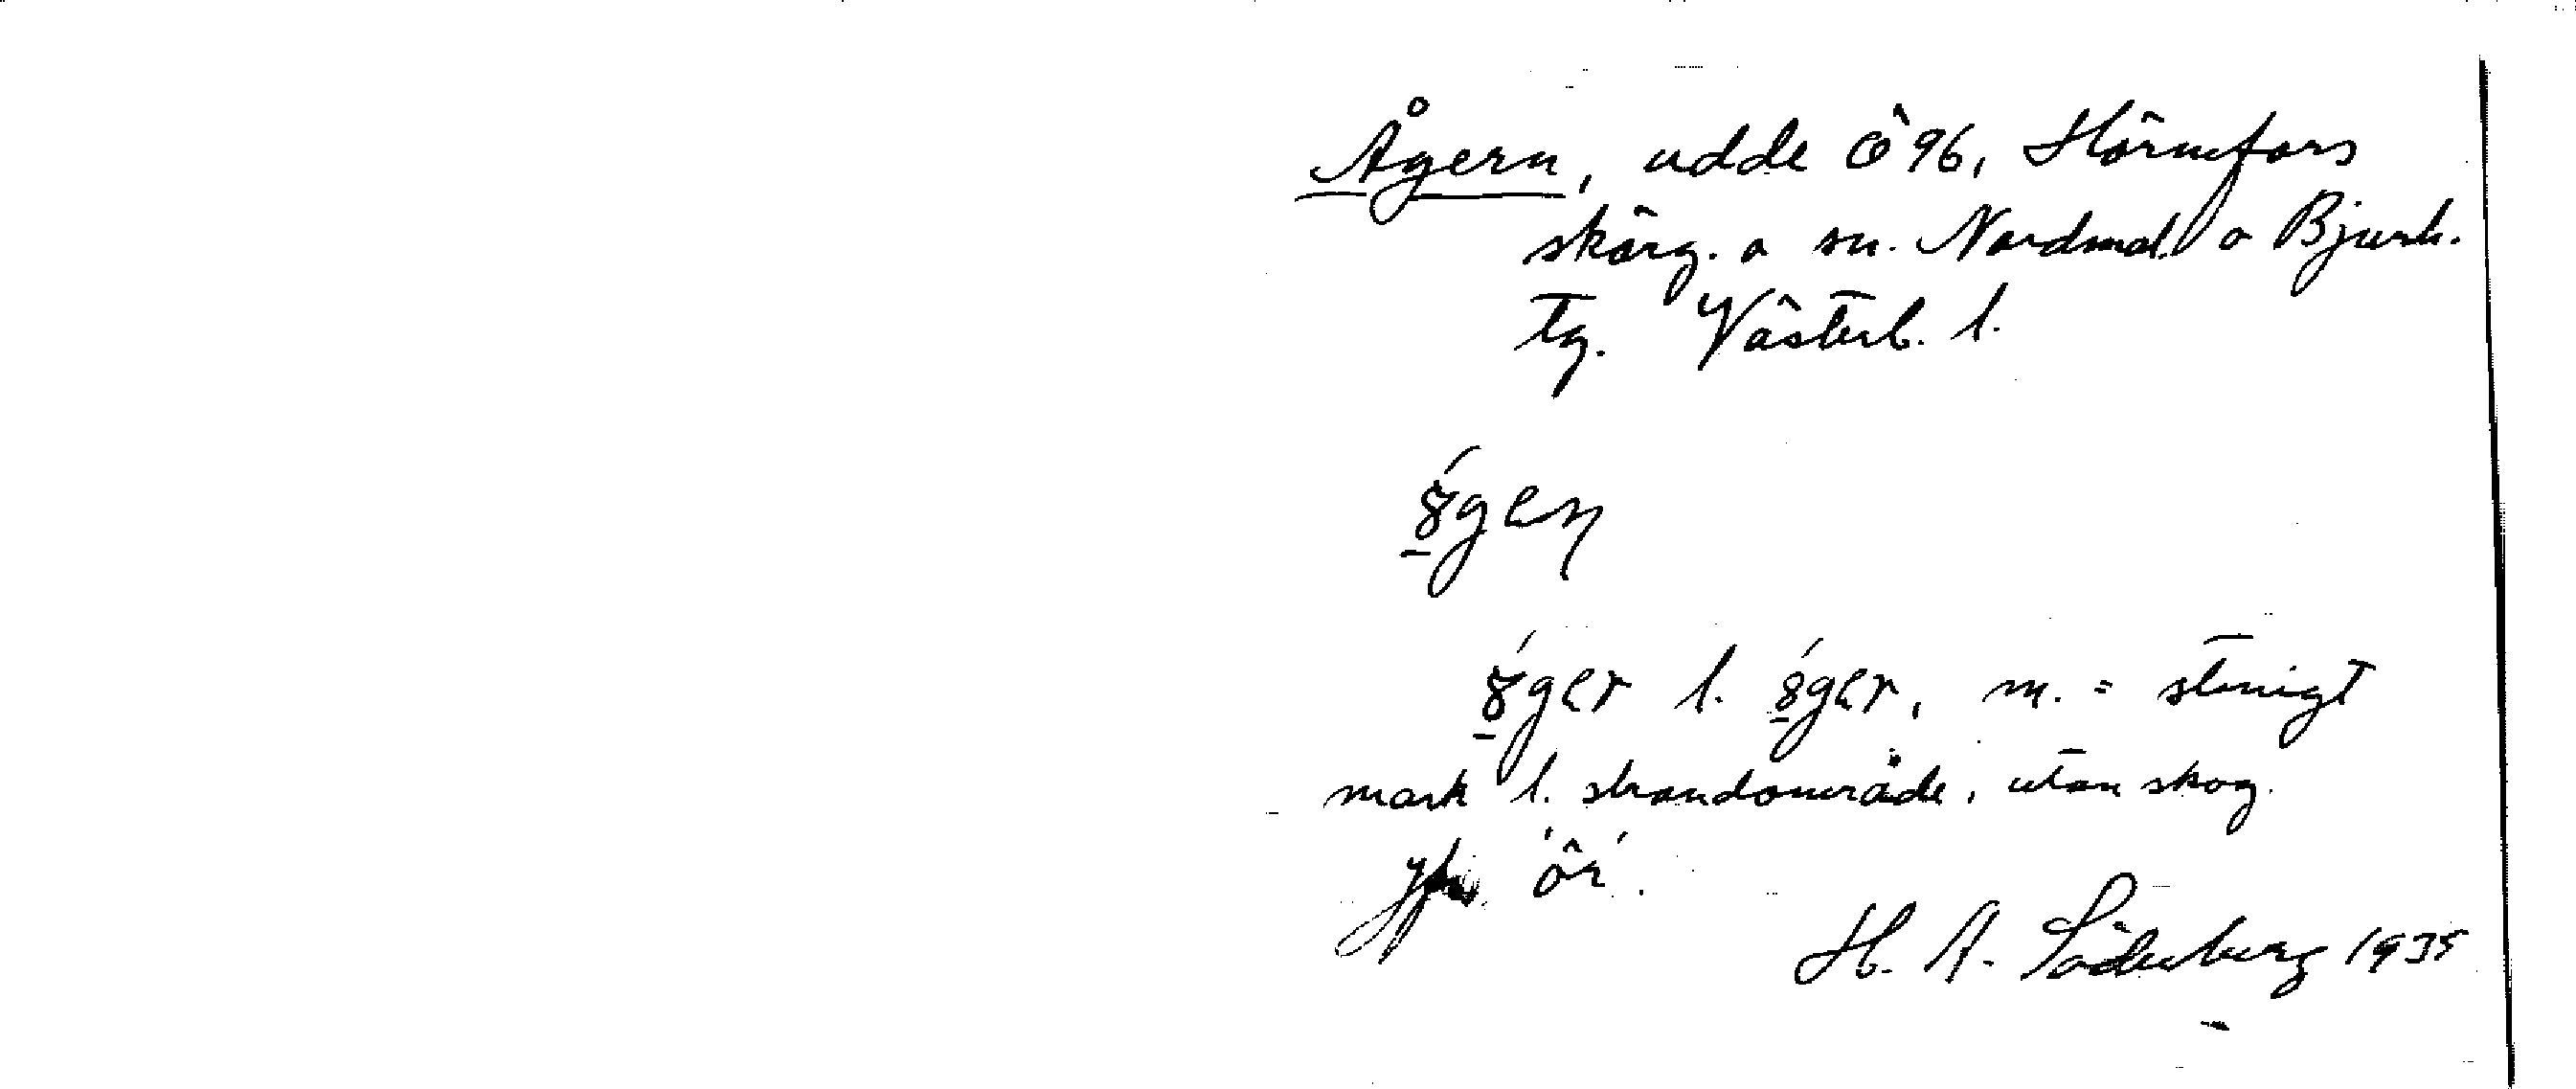 Ågern, udde Ö 96, Hörnefors
skärg. o sn. Nordmal. o Bjurh.
tg. Västerb. l.
ógeɳ
óger l. óger, m. = stenigt
mark l. strandområde, utan skog.
Jfr 'ör'.
H. A. Söderberg 1935